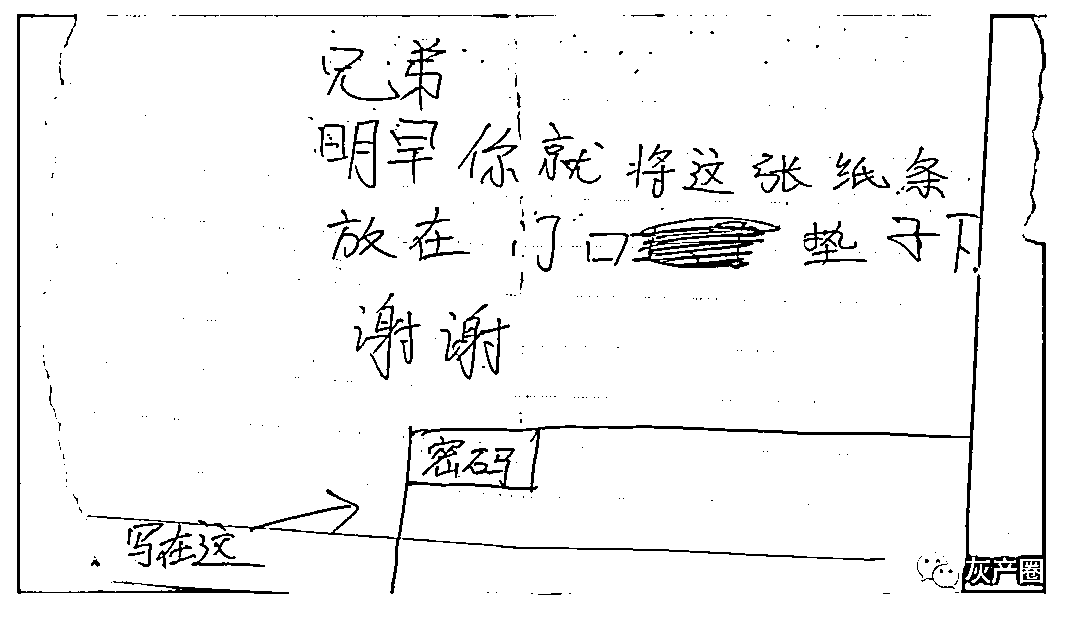 兄弟
明早你就将这张纸条
放在门口垫子下
谢谢
密码
写在这
灰产圈